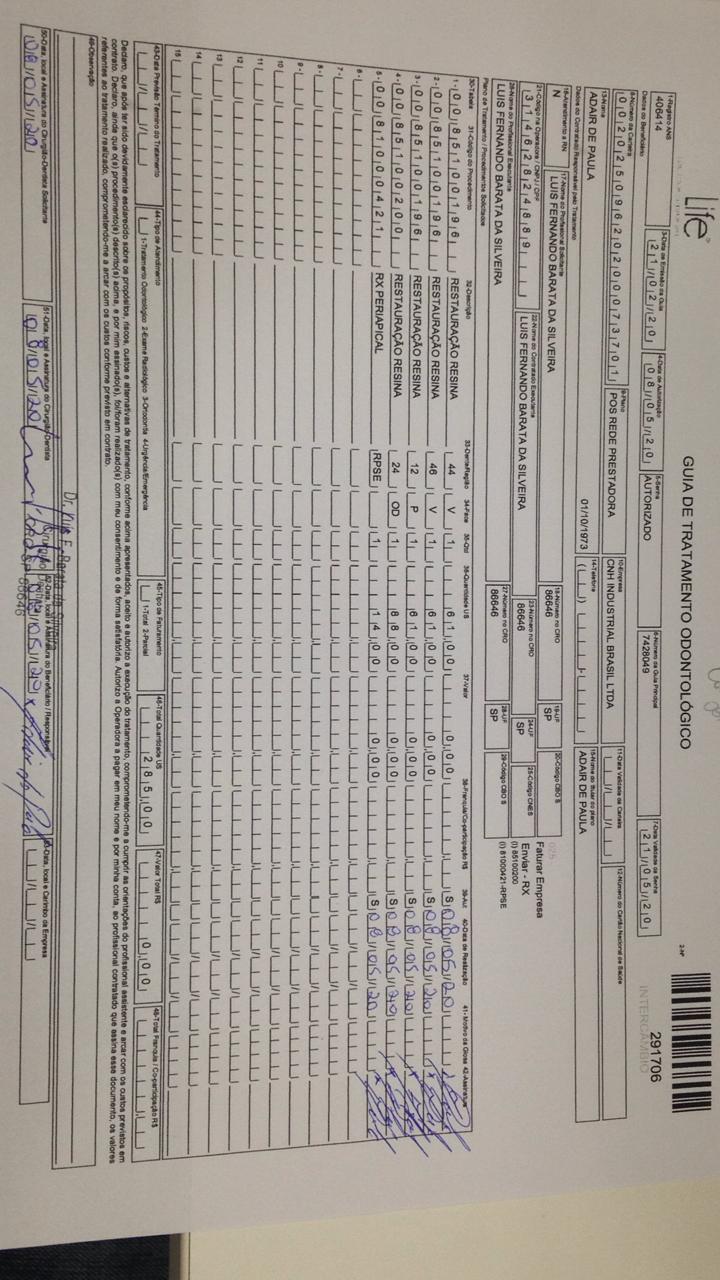 Life
GUIA DE TRATAMENTO ODONTOLÓGICO
2-Nº
291706
INTERCÂMBIO
1-Registro ANS
406414
3-Data de Emissão da Guia
21/02/20
4-Data de Autorização
08/05/20
5-Senha
AUTORIZADO
6-Número da Guia Principal
7428049
7-Data Validade da Senha
21/05/20
Dados do Beneficiário
8-Número da Carteira
00202509620200073701
9-Plano
POS REDE PRESTADORA
10-Empresa
CNH INDUSTRIAL BRASIL LTDA
11-Data Validade da Carteira
12-Número do Cartão Nacional de Saúde
13-Nome
ADAIR DE PAULA
01/10/1973
14-Telefone
15-Nome do titular do plano
ADAIR DE PAULA
Dados do Contratado Responsável pelo Tratamento
16-Atendimento a RN
N
17-Nome do Profissional Solicitante
LUIS FERNANDO BARATA DA SILVEIRA
18-Número no CRO
86646
19-UF
SP
20-Código CBO S
025
Faturar Empresa
Enviar - RX
(I) 85100200
(I) 81000421-RPSE
21-Código na Operadora / CNPJ / CPF
31462824889
22-Nome do Contratado Executante
LUIS FERNANDO BARATA DA SILVEIRA
23-Número no CRO
86646
24-UF
SP
25-Código CNES
26-Nome do Profissional Executante
LUIS FERNANDO BARATA DA SILVEIRA
27-Número no CRO
86646
28-UF
SP
29-Código CBO S
Plano de Tratamento / Procedimentos Solicitados
30-Tabela 31-Código do Procedimento 32-Descrição 33-Dente/Região 34-Face 35-Qtd 36-Quantidade US 37-Valor 38-Franquia/Co-participação R$ 39-Aut 40-Data de Realização 41-Motivo da Glosa 42-Assinatura
1- 00 85100196 RESTAURAÇÃO RESINA 44 V 1 61,00 0,00 S 08/05/20
2- 00 85100196 RESTAURAÇÃO RESINA 46 V 1 61,00 0,00 S 08/05/20
3- 00 85100196 RESTAURAÇÃO RESINA 12 P 1 61,00 0,00 S 08/05/20
4- 00 85100200 RESTAURAÇÃO RESINA 24 OD 1 88,00 0,00 S 08/05/20
5- 00 81000421 RX PERIAPICAL RPSE 1 14,00 0,00 S 08/05/20
6-
7-
8-
9-
10
11
12
13
14
15
43-Data Previsão Término do Tratamento
44-Tipo de Atendimento
1-Tratamento Odontológico 2-Exame Radiológico 3-Ortodontia 4-Urgência/Emergência
45-Tipo de Faturamento
1-Total 2-Parcial
46-Total Quantidade US
285,00
47-Valor Total R$
0,00
48-Total Franquia / Co-participação R$
Declaro, que após ter sido devidamente esclarecido sobre os propósitos, riscos, custos e alternativas de tratamento, conforme acima apresentados, aceito e autorizo a execução do tratamento, comprometendo-me a cumprir as orientações do profissional assistente e arcar com os custos previstos em
contrato. Declaro, ainda que o(s) procedimento(s) descrito(s) acima, e por mim assinado(s), foi/foram realizado(s) com meu consentimento e de forma satisfatória. Autorizo a Operadora a pagar em meu nome e por minha conta, ao profissional contratado que assina esse documento, os valores
referentes ao tratamento realizado, comprometendo-me a arcar com os custos conforme previsto em contrato.
49-Observação
50-Data, local e Assinatura do Cirurgião-Dentista Solicitante
08/05/20
51-Data, local e Assinatura do Cirurgião-Dentista
08/05/20
Cirurgião Dentista
CROSP 86646
52-Data, local e Assinatura do Beneficiário / Responsável
08/05/20
53-Data, local e Carimbo da Empresa